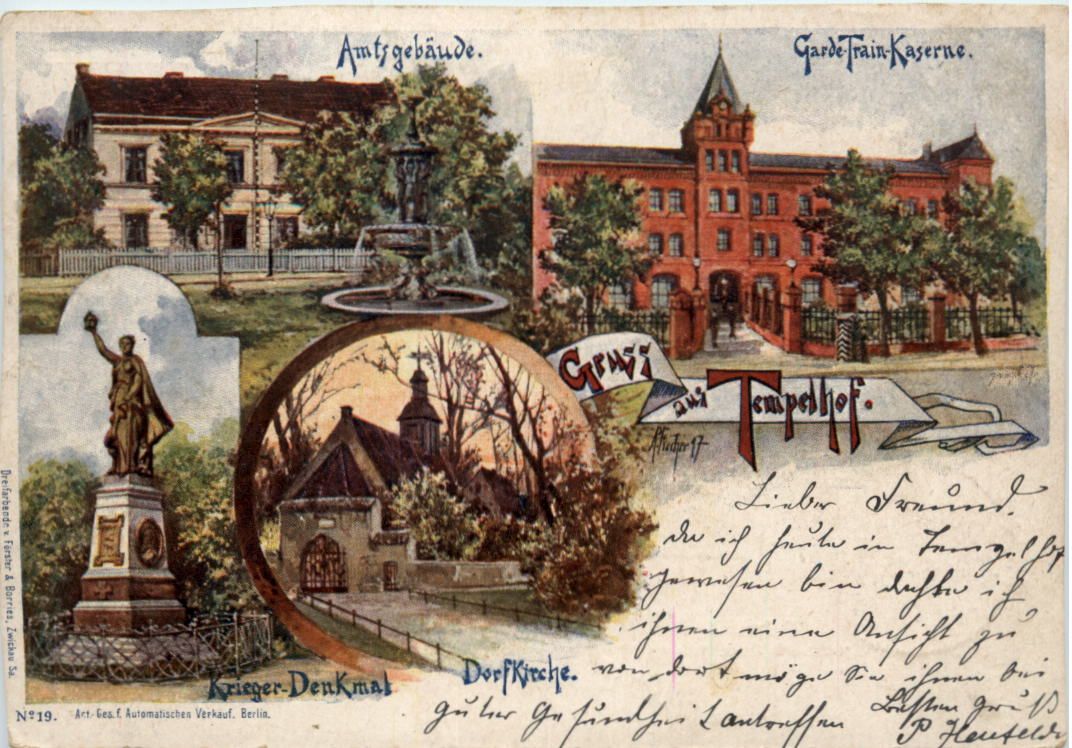 Amtsgebäude.
Garde-Train-Kaserne.
Gruss
aus Tempelhof.
Krieger-Denkmal
Dorfkirche.
Lieber Freund.
da ich heute in Tempelhof
gewesen bin dachte ich
ihnen eine Ansicht zu
von dort möge Sie ihnen bei
guter Gesundheit antreffen
Besten Gruß
P.
Dreifarbendr. v. Förster & Borries, Zwickau Sa.
No 19. Act. Ges. f. Automatischen Verkauf. Berlin.